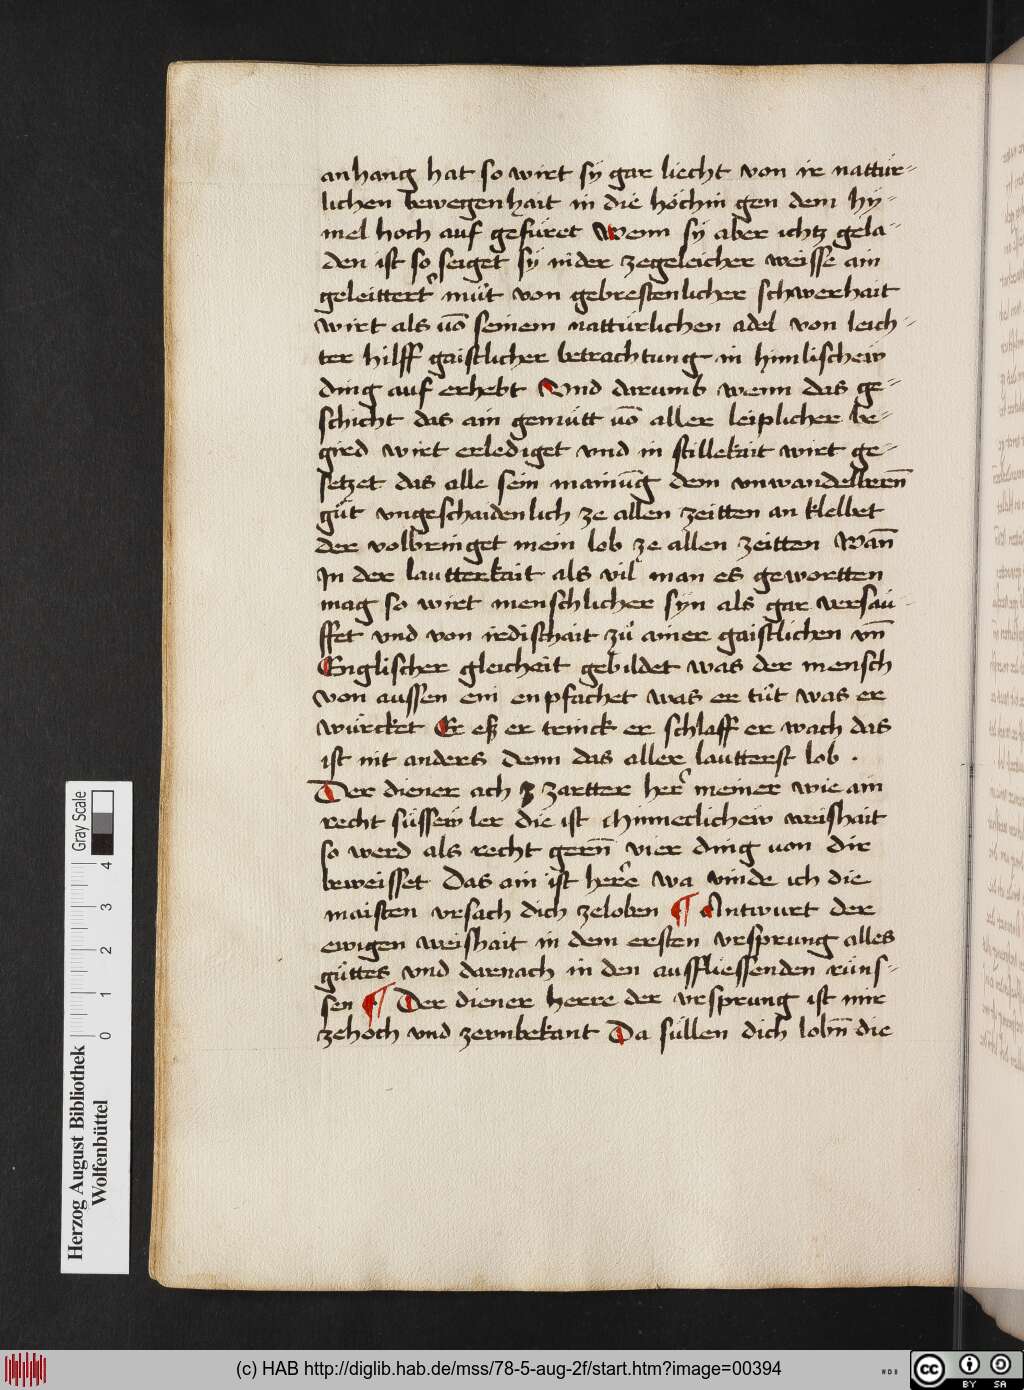 anhang hat so wirt sÿ gar liecht von ir nattúr-
lichen bewegenhait in die höchin gen dem hÿ-
mel hoch auf gefüret Wenn sÿ aber ichtz gela-
den ist so seiget sÿ nider zegeleicher weisse ain
geleittert mut von gebrestenlicher schwerhait
wirt als vō seinem nattúrlichen adel von leich-
ter hilff gaistlicher betrachtung in himlischein
ding auf erhebt Vnd darumb wenn das ge-
schicht das ain gemútt vō aller leiplicher be-
gird wirt erlediget vnd in stillekait wirt ge-
setzet das alle sein mainūg dem vnwandelbern̄
gůt vngeschaidenlich ze allen zeitten an klebet
der volbringet mein lob ze allen zeitten Wan̄
In der lautterkait als vil man es gewortten
mag so wirt menschlicher sÿn als gar versau-
ffet vnd von irdischait zů ainer gaistlichen vn̄
Englischer gleicheit gebildet was der mensch
von aussen ein enpfachet was er tůt was er
würcket Er eß er trinck er schlaff er wach das
ist nit anders denn das aller lautterst lob .
Der diener ach zartter her meiner wie ain
recht süssein ler die ist mineclichein weishait
so werd als recht gern̄ vier ding von dir
beweisset Das ain ist herre wa vinde ich die
maisten vrsach dich zeloben ¶ Antwurt der
ewigen weishait in dem ersten vrsprung alles
gúttes vnd darnach in den aussfliessenden rúns-
sen ¶ Der diener herre der vrsprung ist mir
zehoch vnd zeunbekant Da súllen dich lobn̄ die
Herzog August Bibliothek
Wolfenbüttel
0 1 2 3 4
Gray Scale
(c) HAB http://diglib.hab.de/mss/78-5-aug-2f/start.htm?image=00394
WDB
cc BY SA